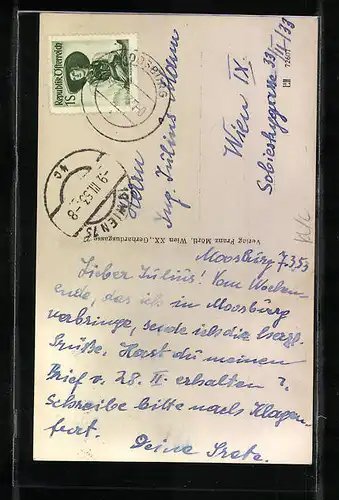 Republik Österreich
1S
MOOSBURG
WIEN 75
-9.III.53.-8
1c
Herrn
Ing. Julius Mann
Wien IX.
Sobieskygasse 33
II/33
Verlag Franz Mörtl, Wien XX., Gerhardusgasse 27
Moosburg 7.3.53
Lieber Julius! Vom Wochen-
ende, das ich in Moosburg
verbringe, sende ich dir herzl.
Grüße. Hast du meinen
Brief v. 28. II. erhalten?
Schreibe bitte nach Klagen-
furt.
Deine Grete.